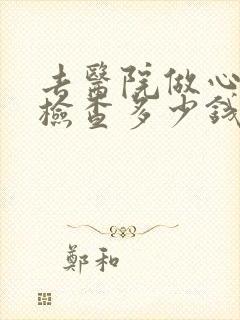 去醫院做心
檢查多少錢
鄭和